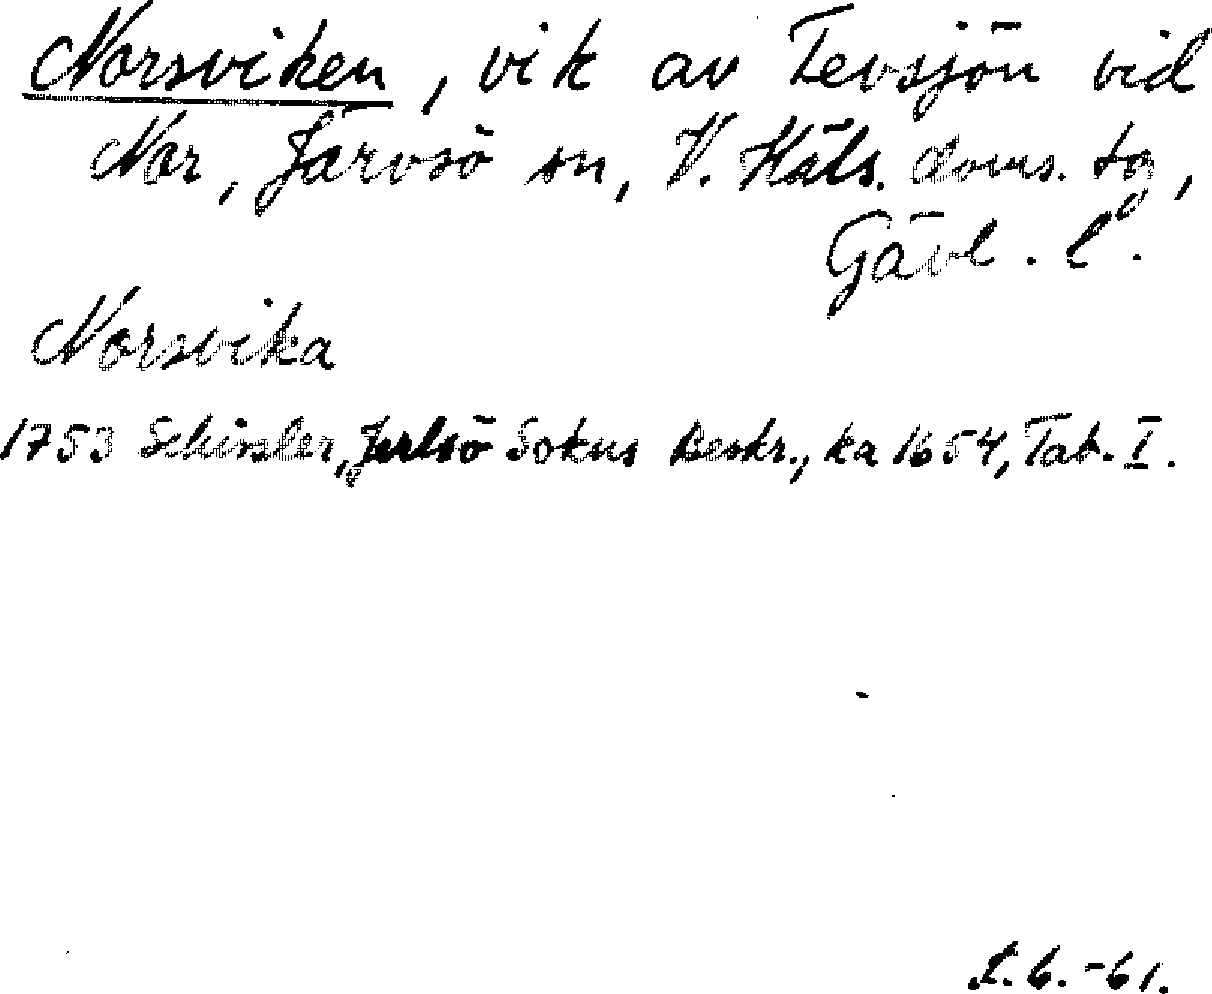 Norsviken, vik av Tevsjön vid
Nor, Järvsö sn, V. Häls. doms. tg,
Gävl. l.
Norsvika
1753 Schissler, Jerlsö Sokns Beskr., ka 1654, Tab. I.
L.G. -61.